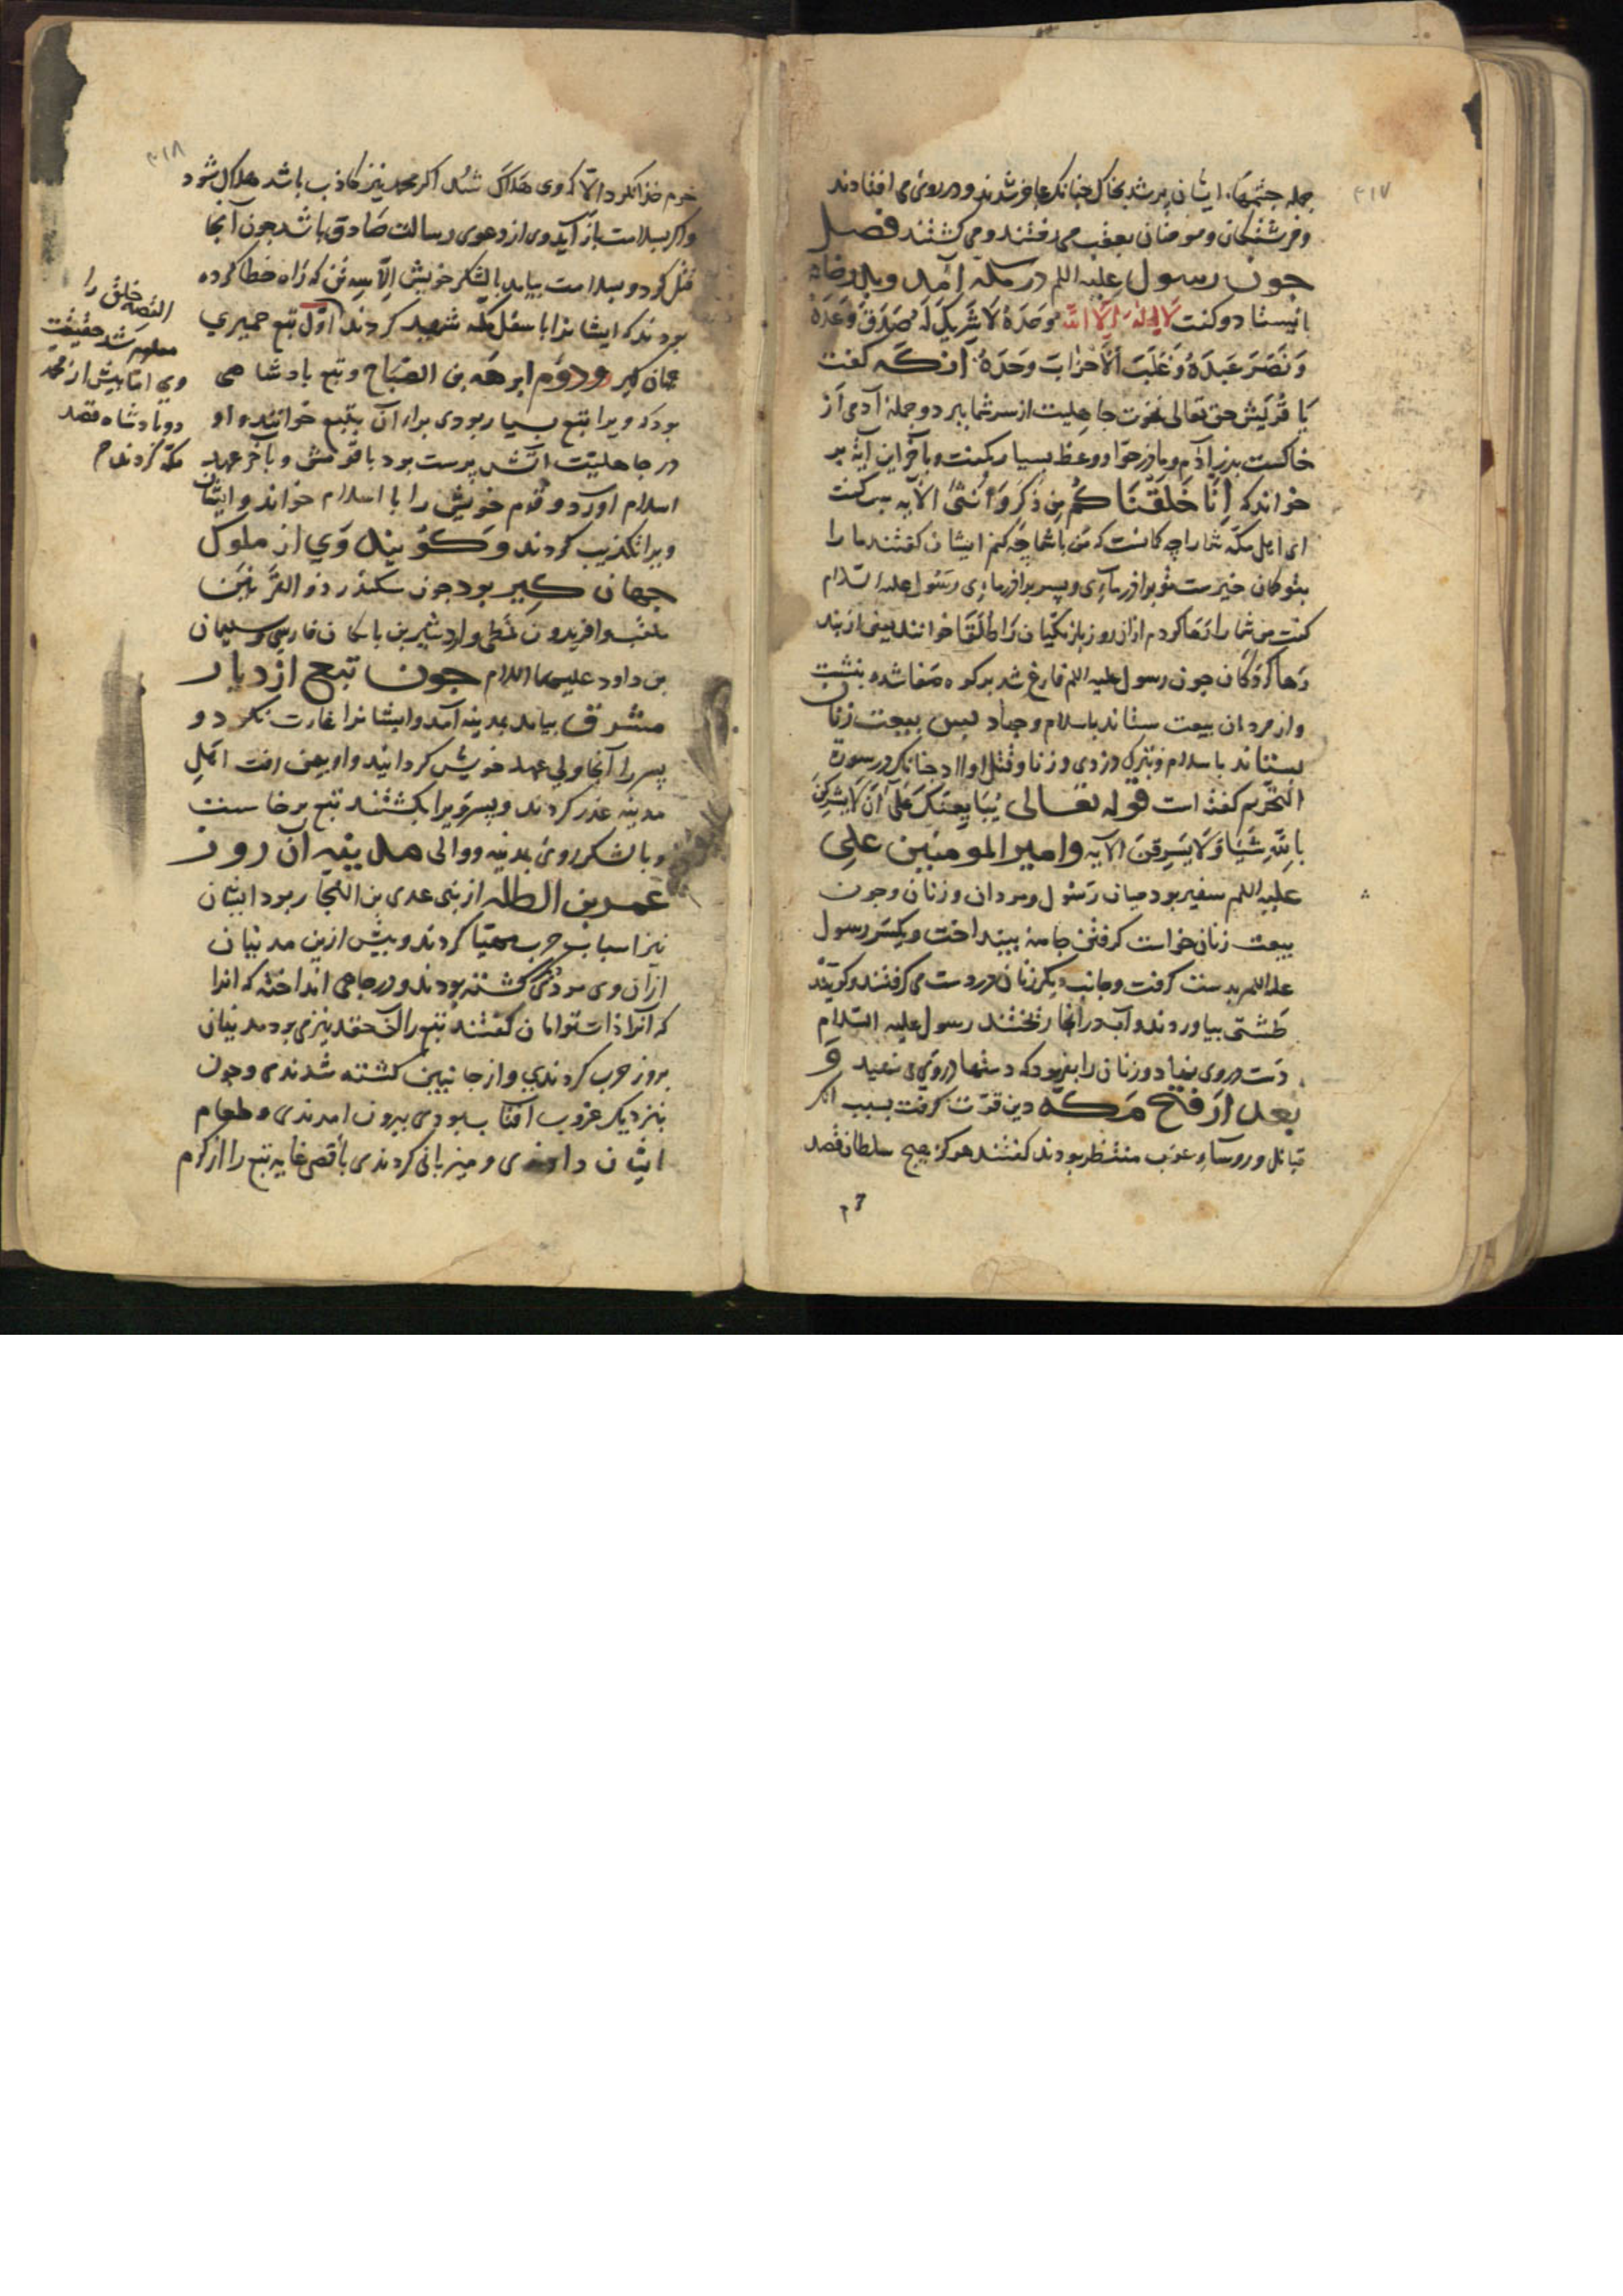 ۳۱۷
جمله چشمها ایشان پر شد بخاک چنانکه عاجز شدند و در روی می افتادند
و فرشتکان و مومنان بعقب می رفتند و می کشتند فصل
جون رسول علیه السلم در مکه آمد و بدر خانه
بایستاد و کفت لا اله الا الله وحده لا شریک له صدق وعده
و نصر عبده و غلب الاحزاب وحده انکه کفت
یا قریش حق تعالی نخوت جاهلیت از سر شما ببرد و جمله آدمی از
خاکست بدر آدم و مادر حوا و وعظ بسیار بکفت و بآخر این آیه بر
خواند که انا خلقناکم من ذکر و انثی الآیه بس کفت
ای اهل مکه شما را چه کمانست که من با شما چه کنم ایشان کفتند ما را
بتو کمان خیرست تو برادر مایی و پسر برادر مایی رسول علیه السلام
کفت من شما را رها کردم از ان روز باز مکیان را طلقا خوانند یعنی از بند
رها کردکان جون رسول علیه السلم فارغ شد بر کوه صفا شد و بنشست
و از مردان بیعت ستاند باسلام و جهاد بس ببیعت زنان
بستاند باسلام و بترک دزدی و زنا و قتل اولاد جنانکه در سورة
التحریم کفته است قوله تعالی یبایعنک علی ان لا یشرکن
بالله شیا و لا یسرقن الآیه و امیر المومنین علی
علیه السلم سفیر بود میان رسول و مردان و زنان و جون
بیعت زنان خواست کرفتن جامه بینداخت و یکسر رسول
علیه السلم بدست کرفت و جانب دیکر زنان در دست می کرفتند و کویند
طشتی بیاوردند و آب در انجا ریختند رسول علیه السلام
دست در وی نهاد و زنان را بفرمود که دستها در وی می نهید و
بعد از فتح مکه دین قوت کرفت بسبب انکه
قبائل و روساء عرب منتظر بودند کفتند هرکز هیچ سلطان قصد
۳۱۸
حرم خدا نکرد الا که وی هلاک شد اکر محمد نیز کاذب باشد هلاک شود
و اکر بسلامت باز آید وی از دعوی رسالت صادق باشد جون آنجا
قتل کرد و بسلامت بیامد بالشکر خویش الا سه تن که راه خطا کرده
بودند که ایشانرا باسفل مکه شهید کردند اول تبع حمیری
و دوم ابرهه بن الصباح و تبع بادشاهی
بود که ویرا تبع بسیار بودی برای آن بتبع خوانند و او
در جاهلیت آتش پرست بود با قومش و بآخر عهد
اسلام آورد و قوم خویش را با اسلام خواند و ایشان
ویرا تکذیب کردند و کویند وی از ملوک
جهان کیر بود جون سکندر ذو القرنین
و افریدون و اردشیر بن بابکان فارسی و سلیمان
بن داود علیهما السلام جون تبع از دیار
مشرق بیامد بمدینه آمد و ایشانرا غارت نکرد و
پسر را آنجا ولی عهد خویش کردانید و او بیمن رفت اهل
مدینه غدر کردند و پسر ویرا بکشتند تبع برخاست
و بالشکر روی بمدینه و والی مدینه آن روز
عمر بن الطله از بنی عدی بن النجار بود ایشان
نیز اسباب حرب مهیا کردند و بیش ازین مدنیان
از آن وی مردی کشته بودند و در جاهی انداخته که انرا
که آنرا ذات توامان کفتند تبع را آن حقد نیز می بود مدنیان
بروز حرب کردندی و از جانبین کشته شدندی و جون
بنزدیک غروب آفتاب بودی بیرون امدندی و طعام
ایشان دادندی و میزبانی کردندی بأقصی غایه تبع را از کرم
القصه خلق را
معلوم شد حقیقت
وی اما بیش از محمد
دو بادشاه قصد
مکه کردند